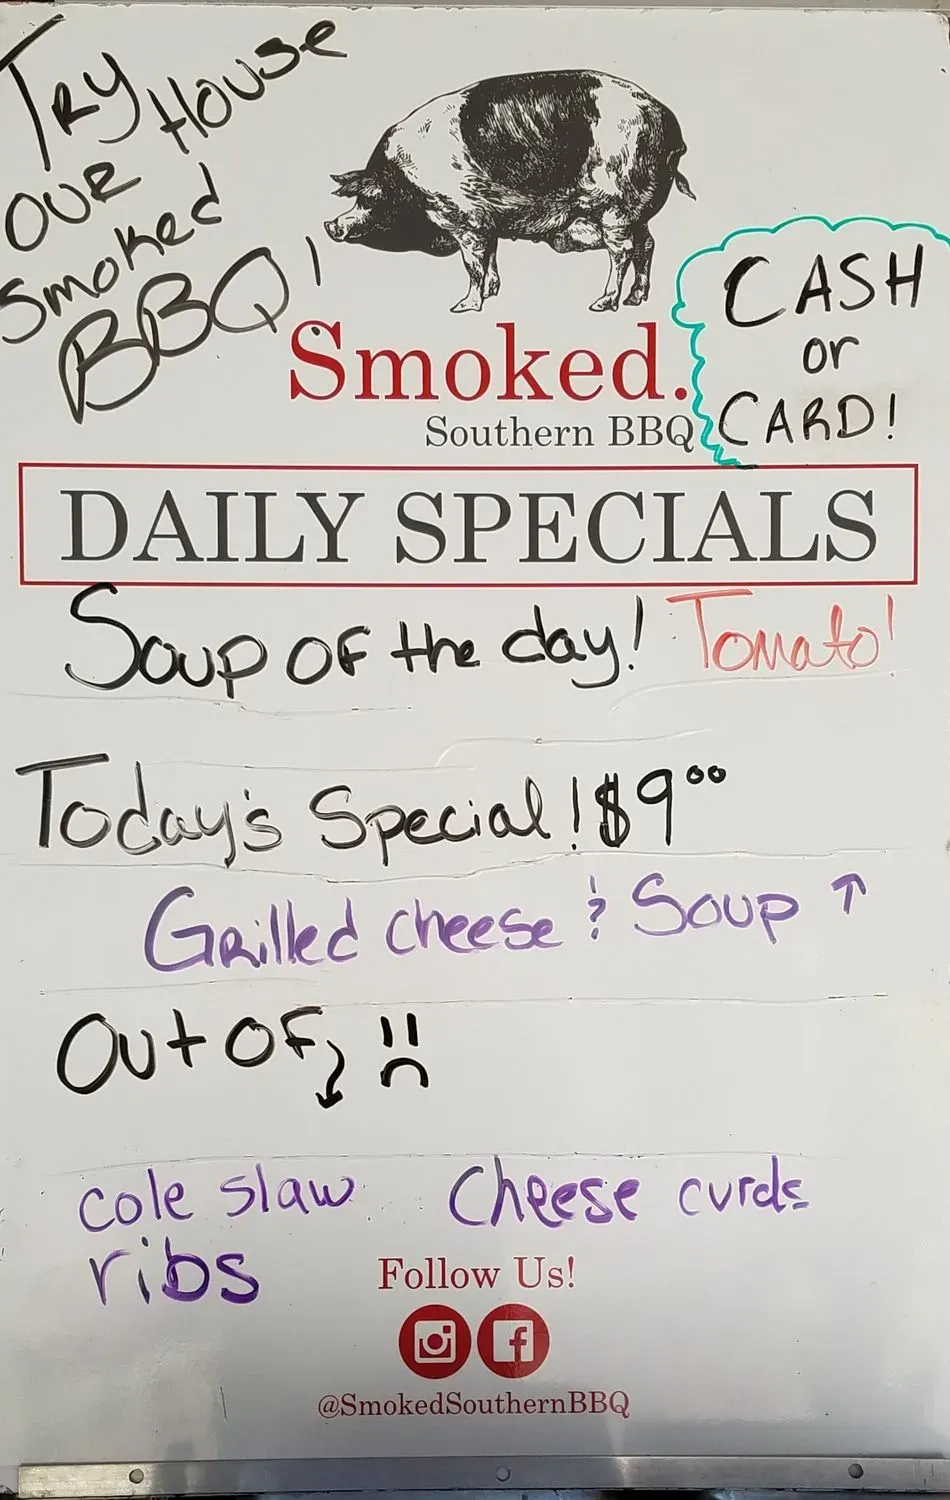 Try
our House
smoked
BBQ!
CASH
or
CARD!
Smoked.
Southern BBQ
DAILY SPECIALS
Soup of the day! Tomato!
Today's Special! $9⁰⁰
Grilled cheese & Soup ↑
Out of ⤵ :(
cole slaw Cheese curds
ribs
Follow Us!
@SmokedSouthernBBQ